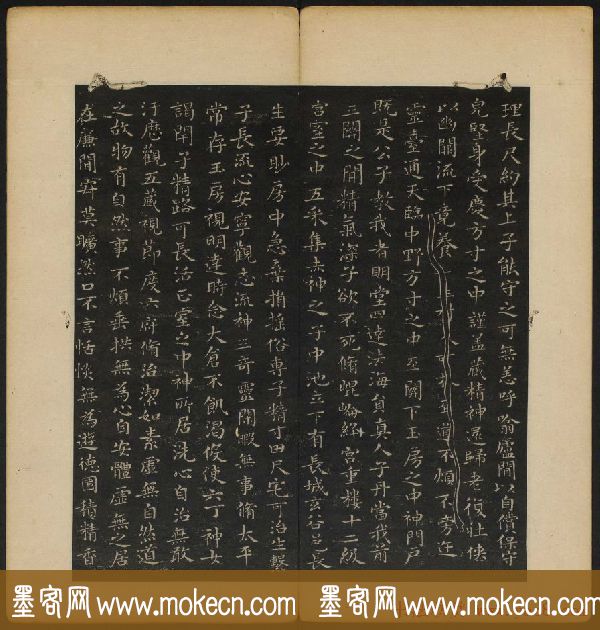 理長尺約其上子能守之可無恙呼噏廬間以自償保守
完堅身受慶方寸之中謹蓋藏精神還歸老復壯俠
以幽闕流下竟養至道不煩不旁迕
靈臺通天臨中野方寸之中至關下玉房之中神門戶
既是公子教我者明堂四達法海員真人子丹當我前
三關之間精氣深子欲不死脩崐崘絳宮重樓十二級
宮室之中五采集赤神之子中池立下有長城玄谷邑長
生要眇房中急棄捐搖俗專子精寸田尺宅可治生繫
子長流心安寧觀志流神三奇靈閑暇無事脩太平
常存玉房視明達時念大倉不飢渴役使六丁神女
謁閉子精路可長活正室之中神所居洗心自治無敢
汙歷觀五藏視節度六府脩治潔如素虛無自然道
之故物有自然事不煩垂拱無為心自安體虛無之居
在廉間寂莫曠然口不言恬惔無為遊德園積精香
墨客网 www.mokecn.com 墨客网 www.mokecn.com